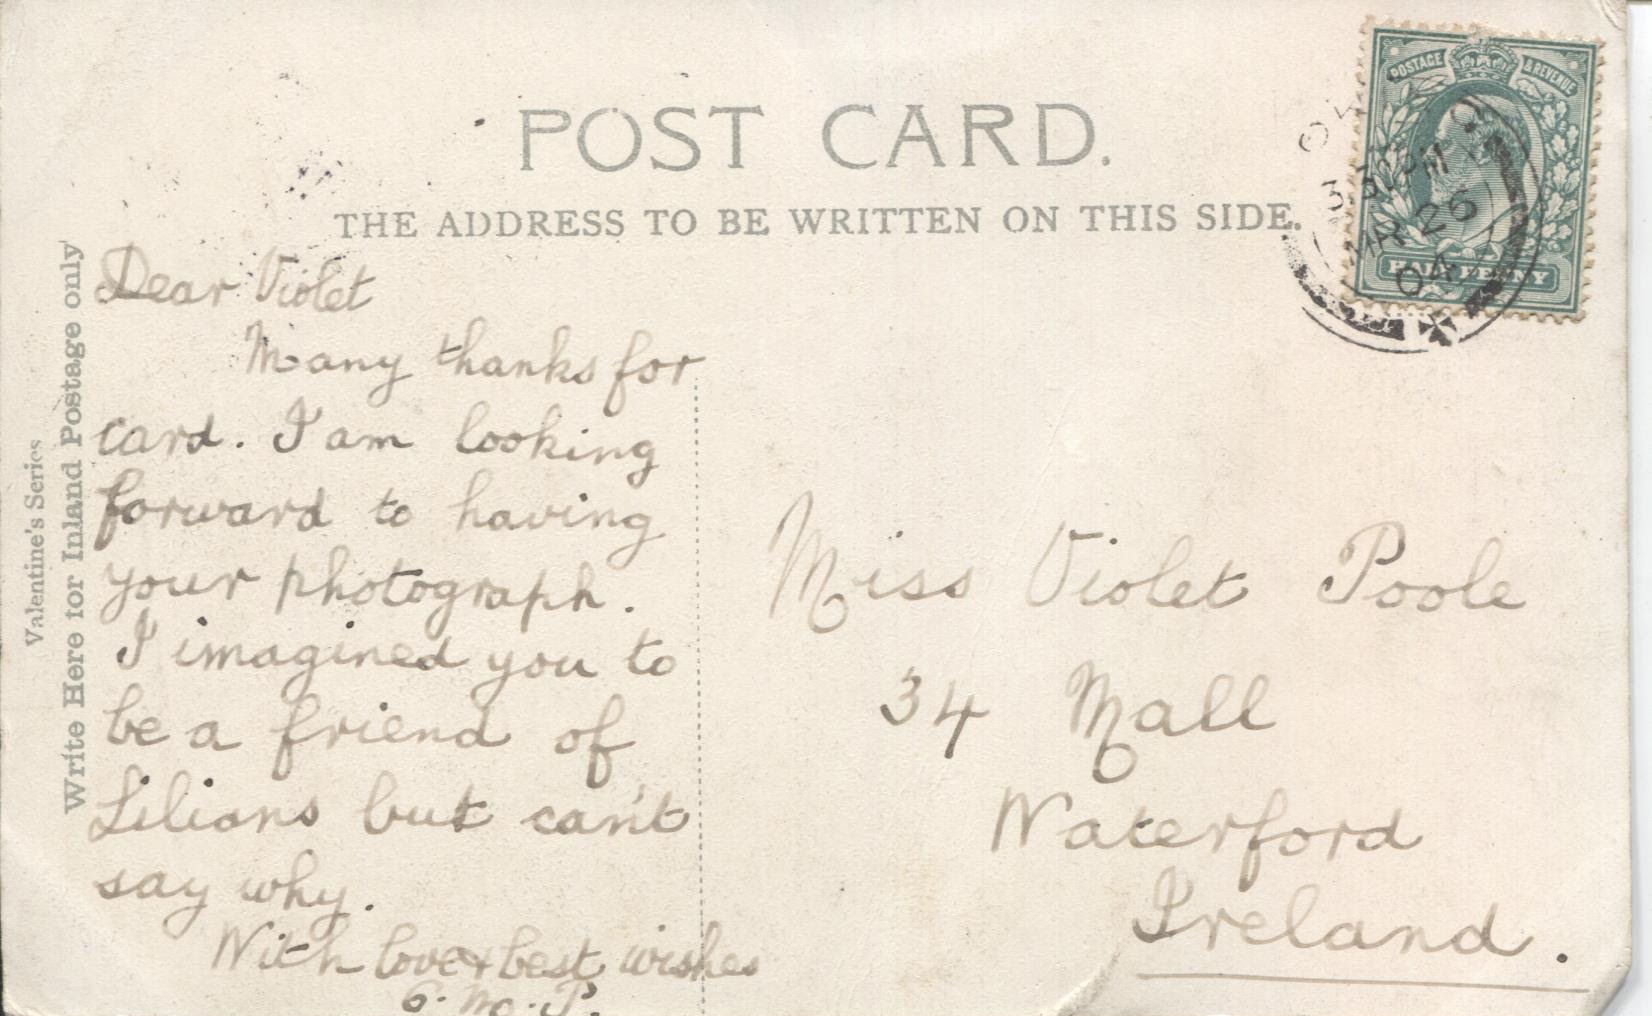 POST CARD.
THE ADDRESS TO BE WRITTEN ON THIS SIDE.
Valentine's Series
Write Here for Inland Postage only
Dear Violet
Many thanks for
card. I am looking
forward to having
your photograph.
I imagined you to
be a friend of
Lilians but can't
say why.
With love & best wishes
Miss Violet Poole
34 Mall
Waterford
Ireland.
POSTAGE & REVENUE
HALFPENNY
3.30 PM
MR 26
04